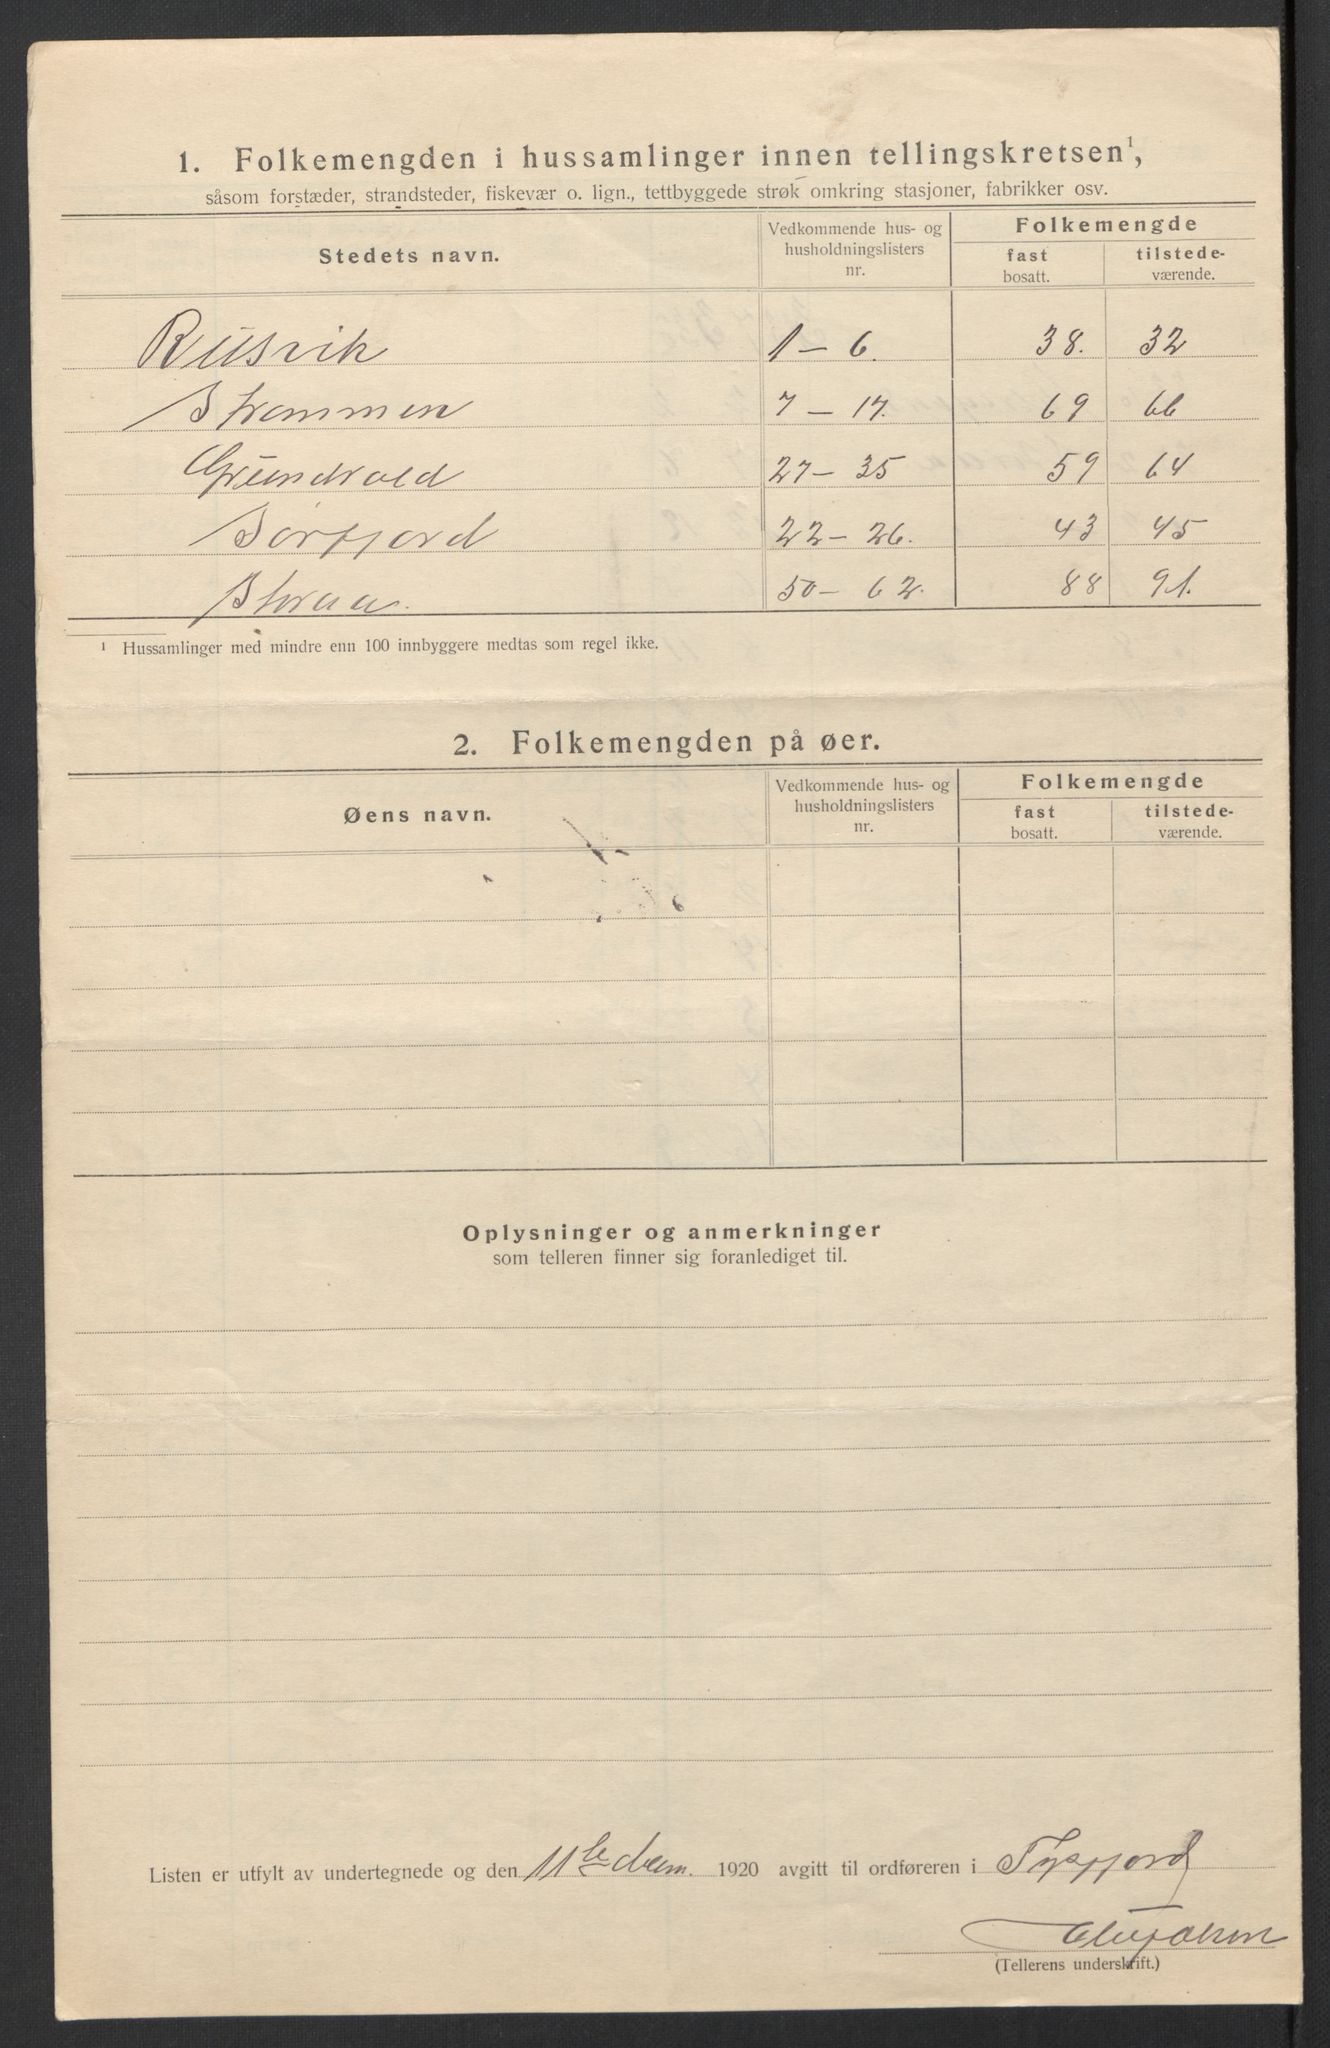 1. Folkemengden i hussamlinger innen tellingskretsen¹,
såsom forstæder, strandsteder, fiskevær o. lign., tettbyggede strøk omkring stasjoner, fabrikker osv.
Stedets navn. Vedkommende hus- og husholdningslisters nr. Folkemengde fast bosatt. tilstede-værende.
Rüsvik 1 – 6. 38. 32
Strømmen 7 – 17. 69 66
Gründvold 27 – 35 59 64
Sørfjord 22 – 26. 43 45
Storaa. 50 – 62. 88 91.
¹ Hussamlinger med mindre enn 100 innbyggere medtas som regel ikke.
2. Folkemengden på øer.
Øens navn. Vedkommende hus- og husholdningslisters nr. Folkemengde fast bosatt. tilstede-værende.
Oplysninger og anmerkninger
som telleren finner sig foranlediget til.
Listen er utfylt av undertegnede og den 11te decm. 1920 avgitt til ordføreren i Tysfjord
(Tellerens underskrift.)